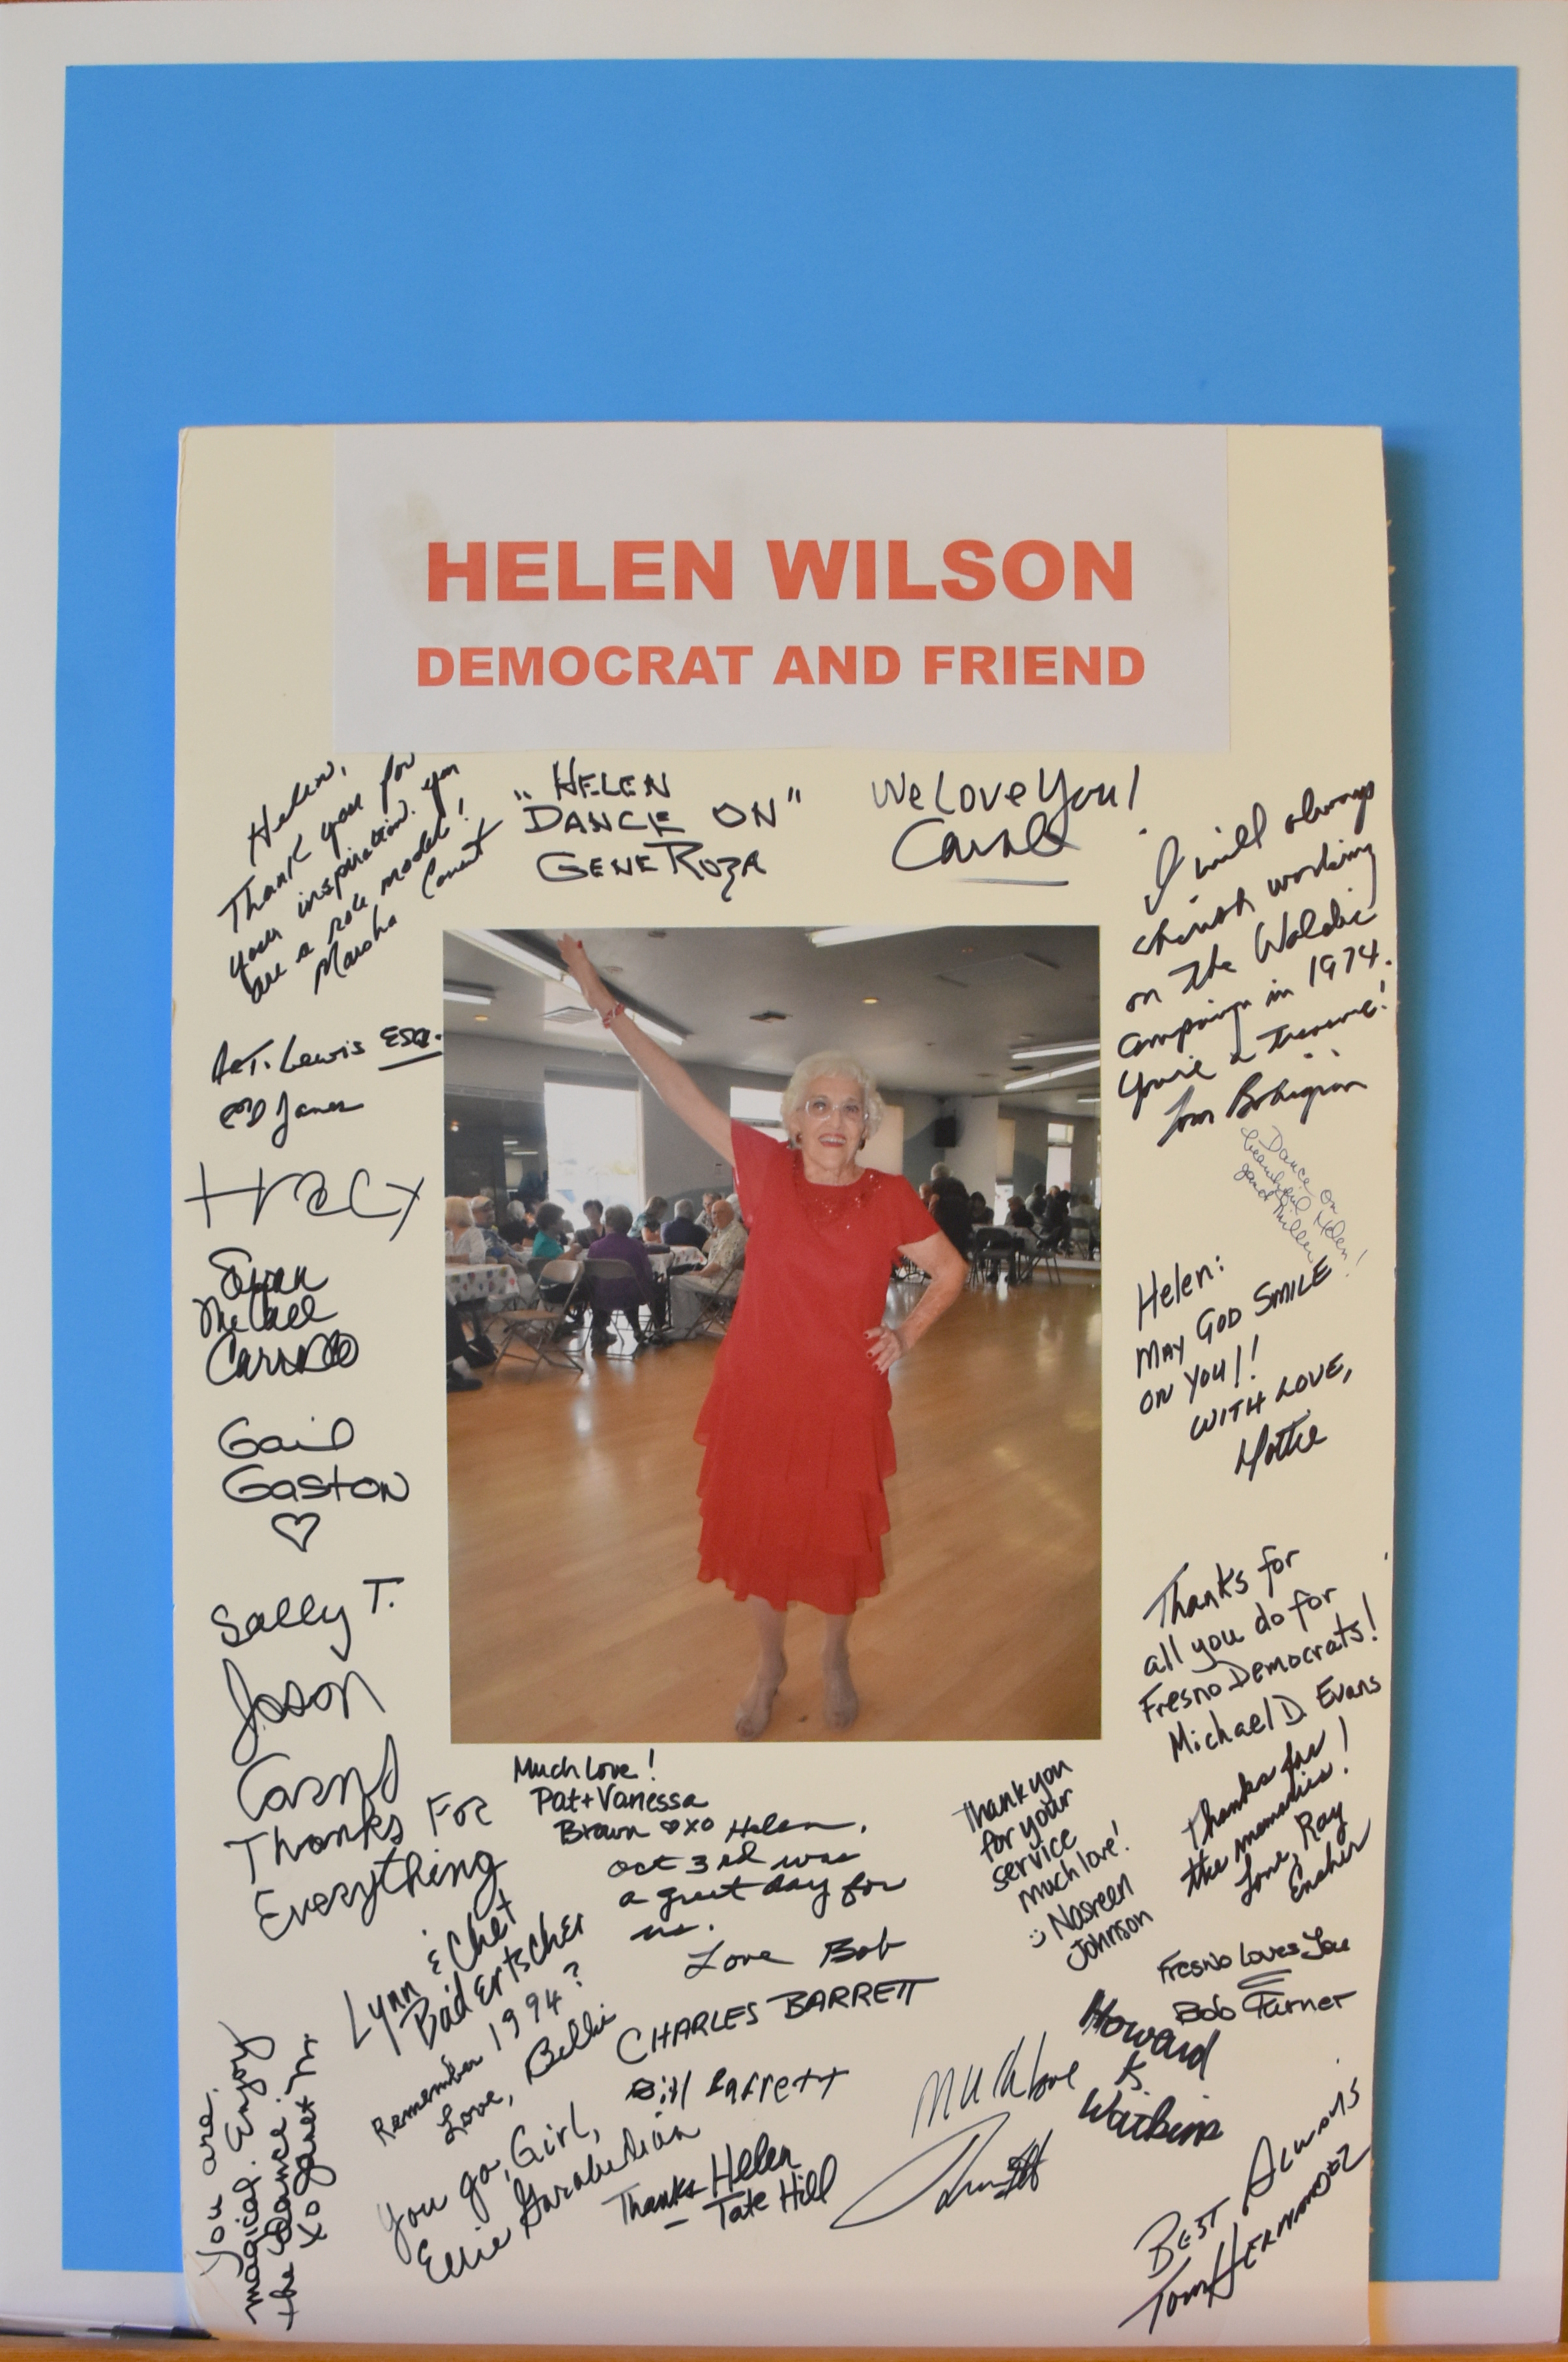 HELEN WILSON
DEMOCRAT AND FRIEND
Helen,
Thank you for
your inspiration. You
are a role model!
Marsha Conant
"HELEN
DANCE ON"
GENE ROZA
We Love You!
Carol
I will always
cherish working
on the Waldie
campaign in 1974.
You're a treasure!
Tom Bohigian
Dance on
beautiful Helen!
Janet Miller
Helen:
MAY GOD SMILE
ON YOU!!
WITH LOVE,
Hattie
Thanks for
all you do for
Fresno Democrats!
Michael D. Evans
Thanks for
the memories!
Love, Ray
Ensher
Fresno Loves You
Bob Turner
Howard
K.
Watkins
BEST ALWAYS
TOM HERNANDEZ
A.T. Lewis ESQ.
Ed James
Tracy
Susan
McCall
Carrillo
Gail
Gaston
Sally T.
Jason
Carns
Thanks For
Everything
Much Love!
Pat + Vanessa
Brown xo
Helen,
Oct 3rd was
a great day for
us.
Love Bob
Thank you
for your
service
much love!
Nasreen
Johnson
Lynn & Chet
Badertscher
Remember 1994?
Love, Billie
CHARLES BARRETT
Bill Barrett
You go, Girl,
Ellie Garabedian
Thanks Helen
- Tate Hill
Much love
You are
magical. Enjoy
the dance!
xo Janet